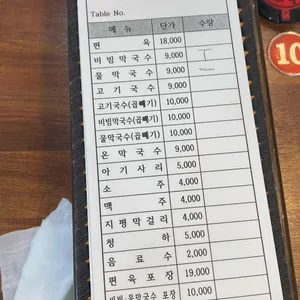 Table No.
메 뉴 단가 수량
편 육 18,000
비빔막국수 9,000
물막국수 9,000
고기국수 9,000
고기국수(곱빼기) 10,000
비빔막국수(곱빼기) 10,000
물막국수(곱빼기) 10,000
온막국수 9,000
아기사리 5,000
소 주 4,000
맥 주 4,000
지평막걸리 4,000
청 하 5,000
음료수 2,000
편육포장 19,000
비빔·물막국수 포장 10,000
10